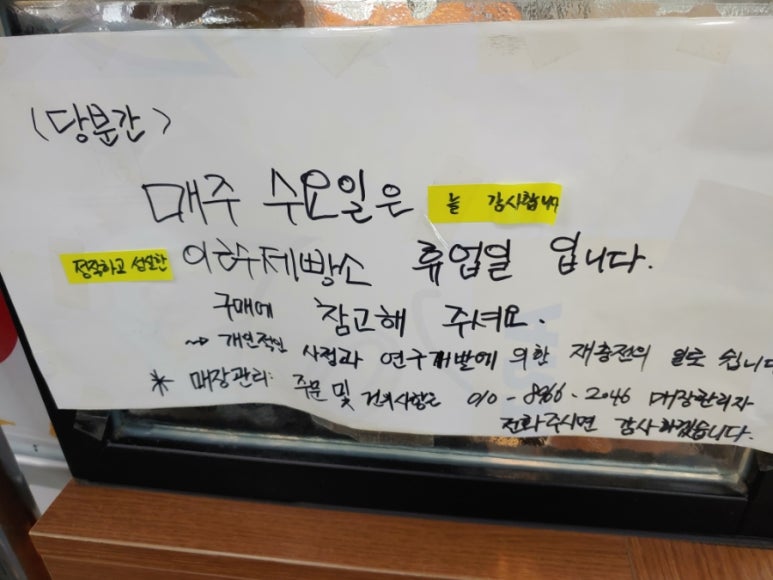 <당분간>
매주 수요일은 늘 감사합니다
정직하고 성실한 이흥수제빵소 휴업일 입니다.
구매에 참고해 주셔요.
~> 개인적인 사정과 연구개발에 의한 재충전의 일로 쉽니다
* 매장관리: 주문 및 건의사항은 010-8966-2046 매장관리자
전화주시면 감사하겠습니다.